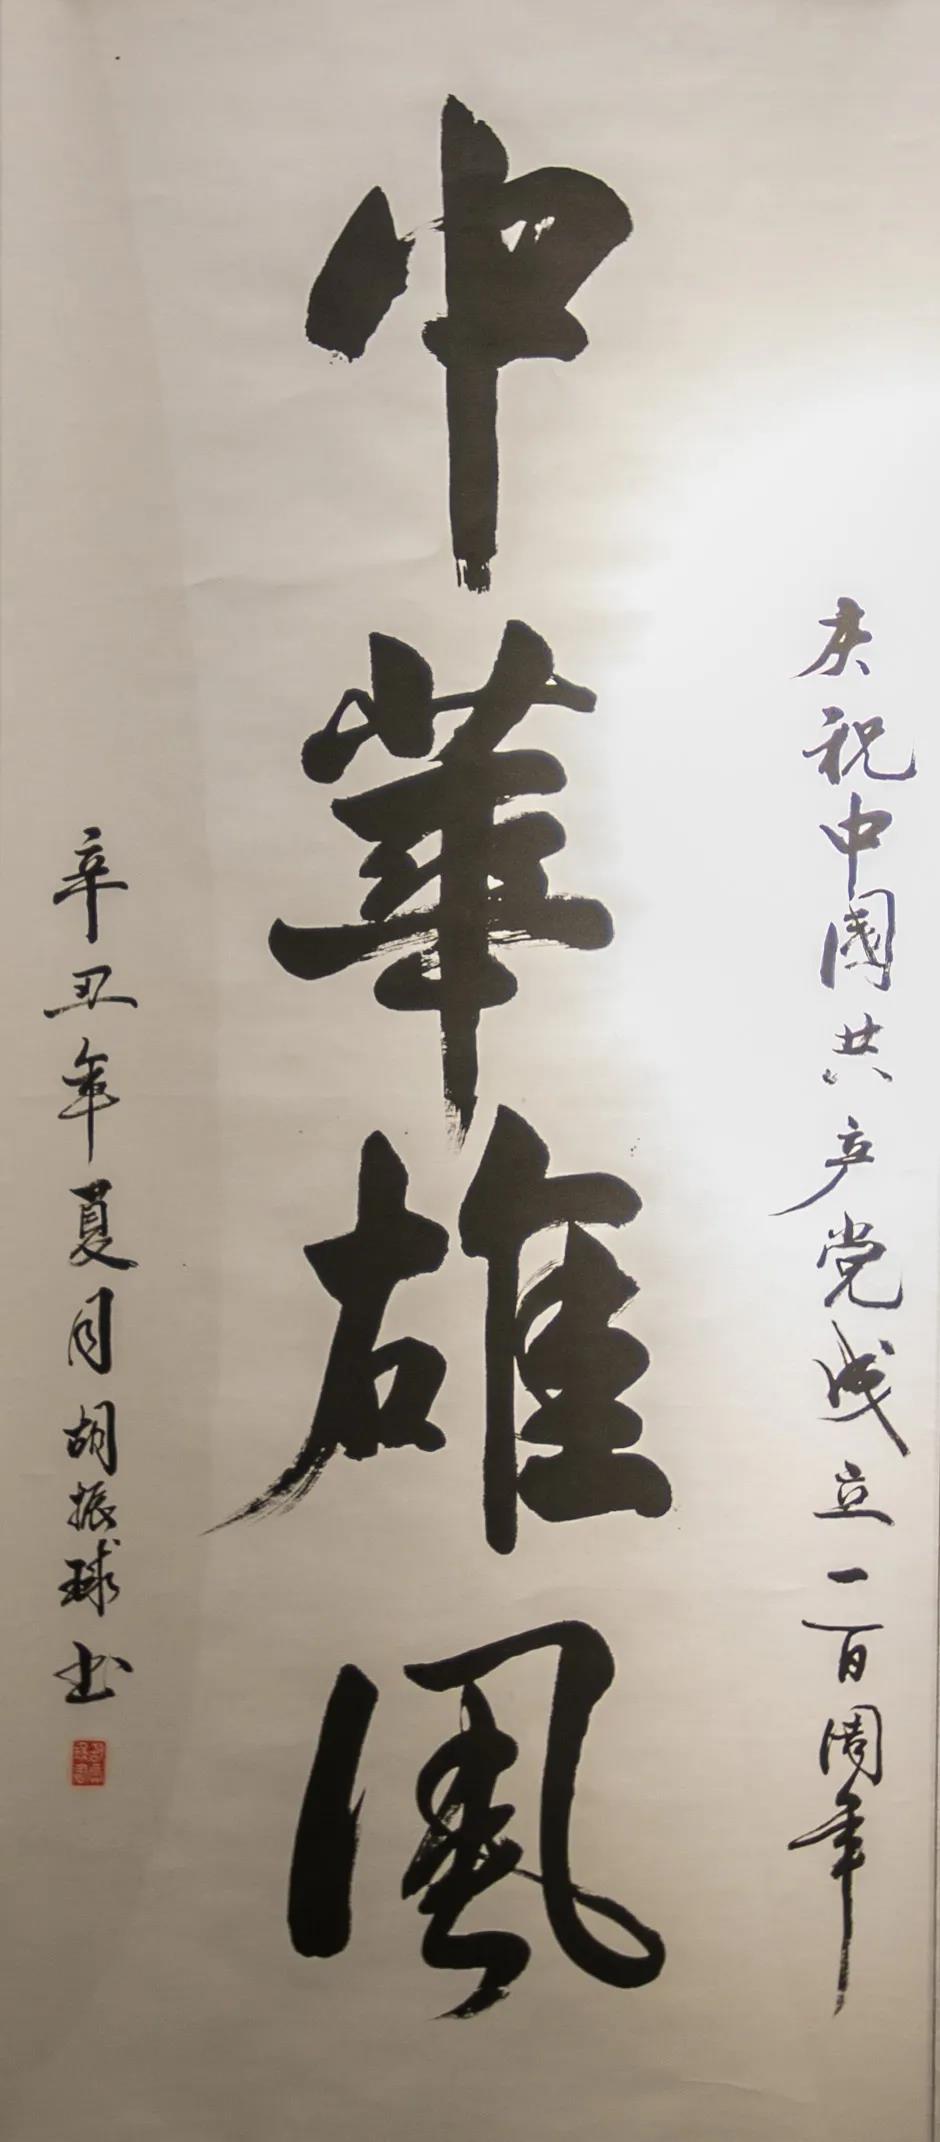 庆祝中國共产党成立一百周年
中華雄風
辛丑年夏月胡振球书